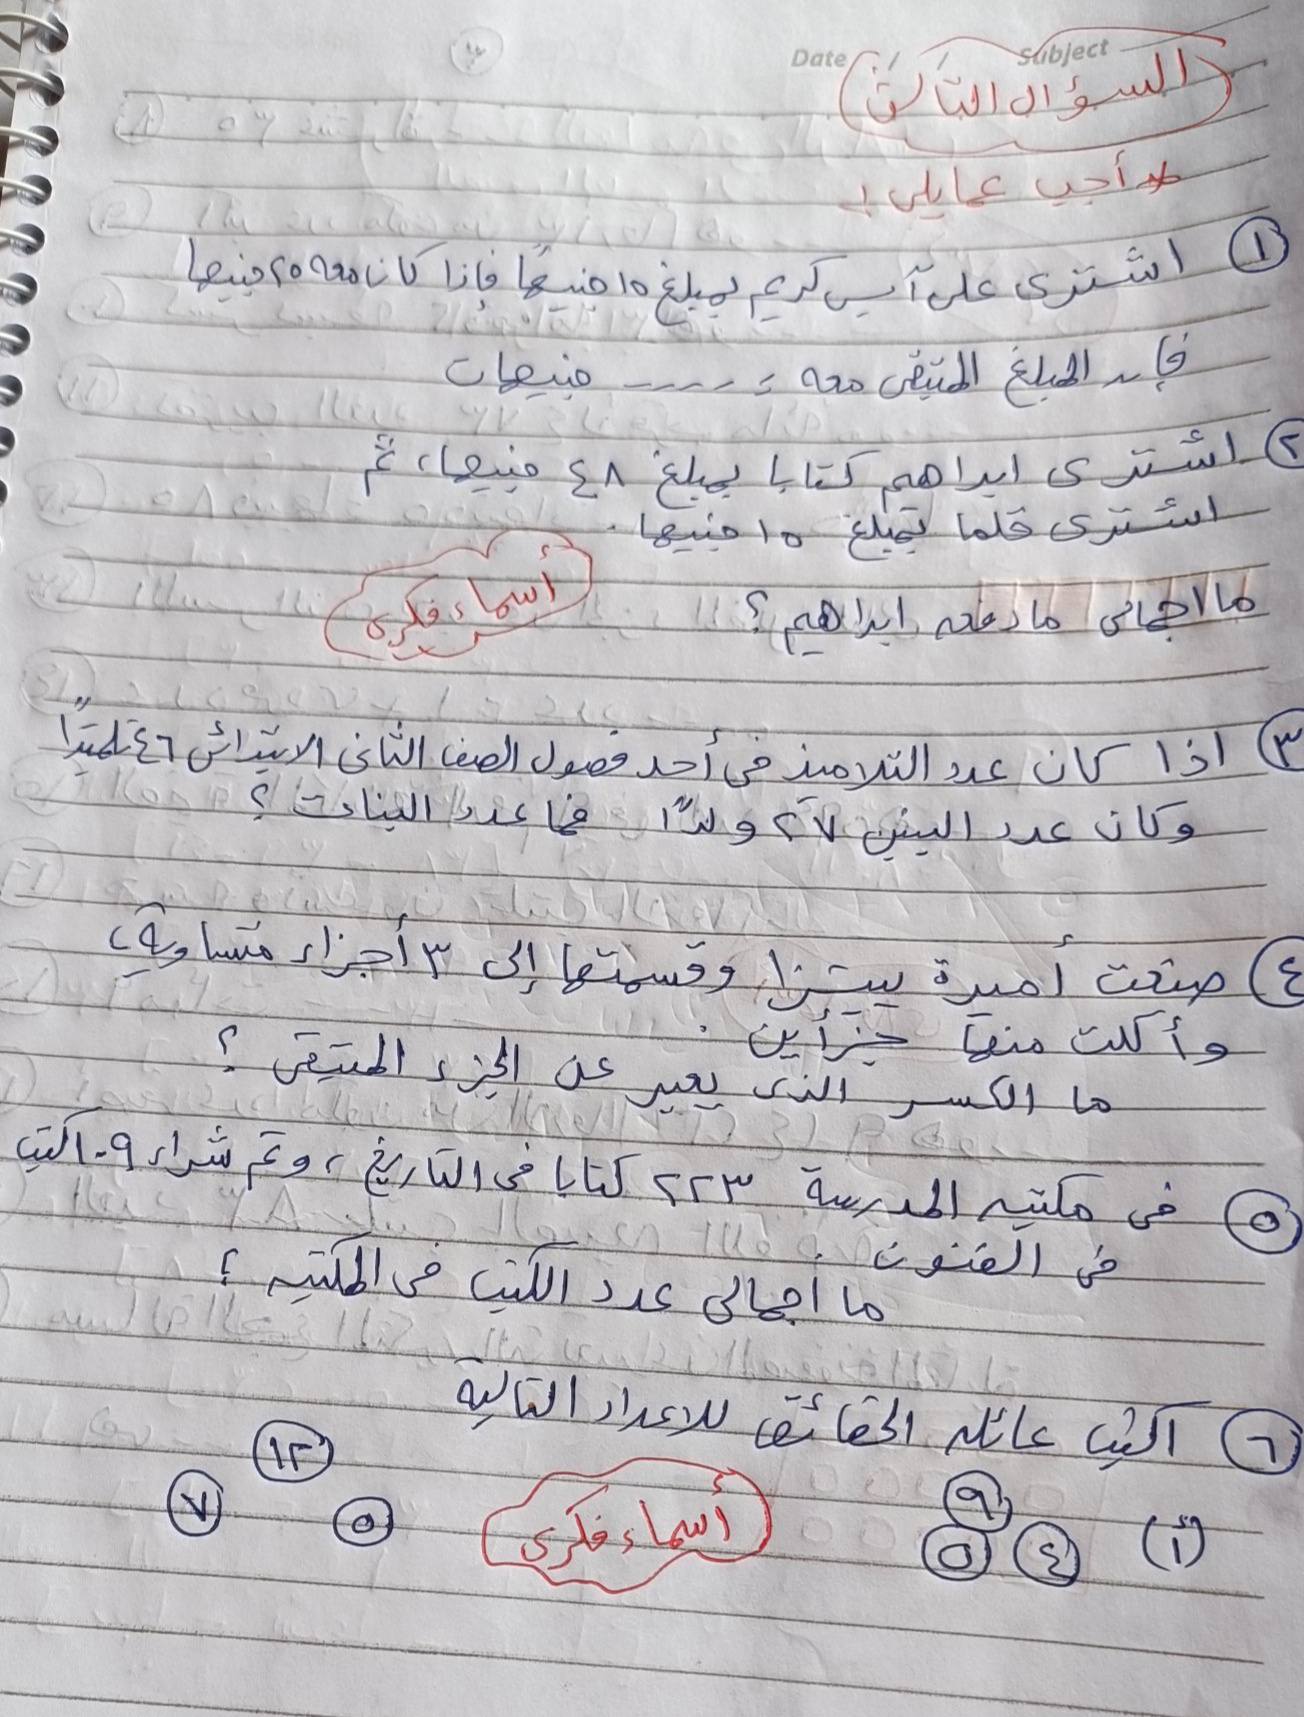 Date / / Subject
السؤال الثالث
* أجب عما يلي :-
١ اشترى على آيس كريم بمبلغ ١٥ جنيهًا فإذا كان معه ٢٥ جنيها
فإن المبلغ المتبقى معه = ---- جنيهات
٢ اشترى ابراهيم كتابا بمبلغ ٤٨ جنيها، ثم
اشترى قلما بمبلغ ١٥ جنيها .
ما اجمالى ما دفعه ابراهيم ؟
أسماء فكرى
٣ اذا كان عدد التلاميذ فى أحد فصول الصف الثانى الابتدائى ٤٦ تلميذًا
وكان عدد البنين ٢٧ ولدًا فما عدد البنات ؟
٤ صنعت أميرة بيتزا وقسمتها إلى ٣ أجزاء متساوية،
وأكلت منها جزأين .
ما الكسر الذى يعبر عن الجزء المتبقى ؟
٥ فى مكتبه المدرسة ٢٢٣ كتابا فى التاريخ، وتم شراء ١٠٩ كتب
فى الفنون .
ما أجمالى عدد الكتب فى المكتبه ؟
٦ اكتب عائله الحقائق للاعداد التالية
(أ) ٩ ١٢
٤ ٥ ٥ ٧
أسماء فكرى